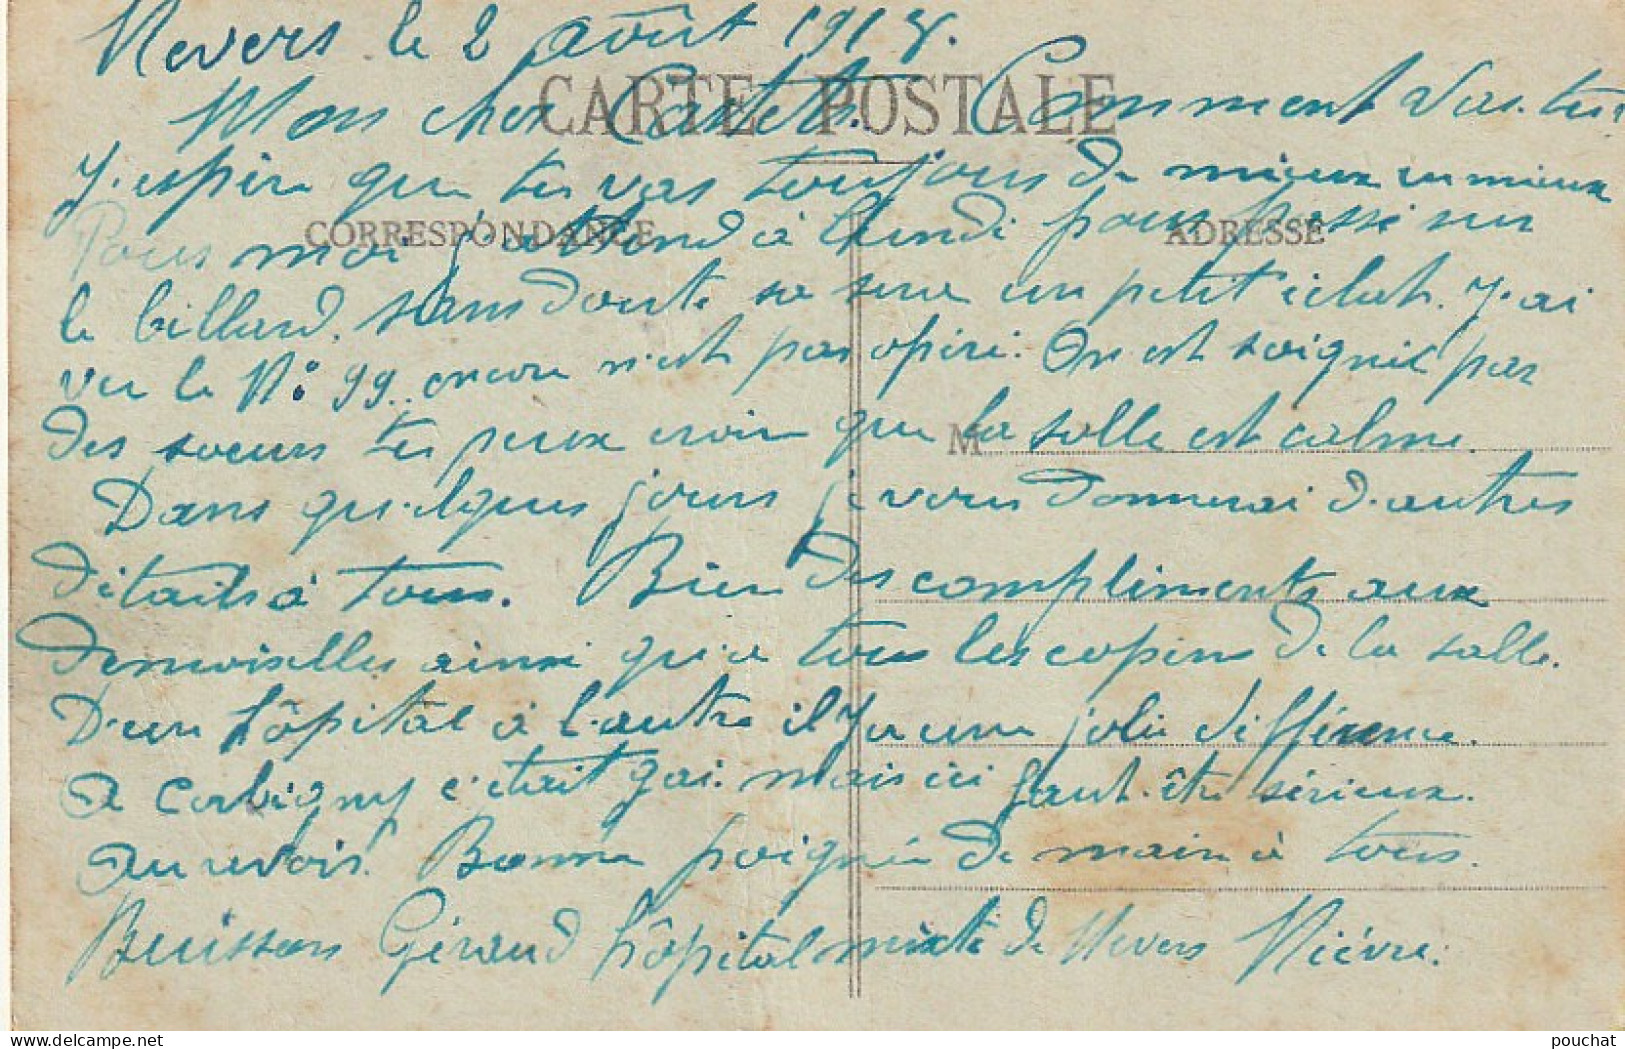 Nevers le 2 août 1915.
CARTE POSTALE
Mon cher Comment vas-tu
J'espère que tu vas toujours de mieux en mieux
CORRESPONDANCE
ADRESSE
Pour moi j'attend à lundi pour passé sur
le billard. sans doute sa sera un petit éclat. J'ai
vu le N° 99. encore n'est pas opéré. On est soigné par
des soeurs tu peux croire que la salle est calme.
M
Dans quelques jours je vous donnerai d'autres
détails à tous. Bien des compliments aux
demoiselles ainsi qu'a tous les copins de la salle.
D'un hôpital à l'autre il y a une jolie différence.
A Corbigny c'était gai. mais ici faut-être sérieux.
Au revoir. Bonne poignée de main à tous.
Buisson Géraud hôpital mixte de Nevers Nièvre.
pouchat
www.delcampe.net